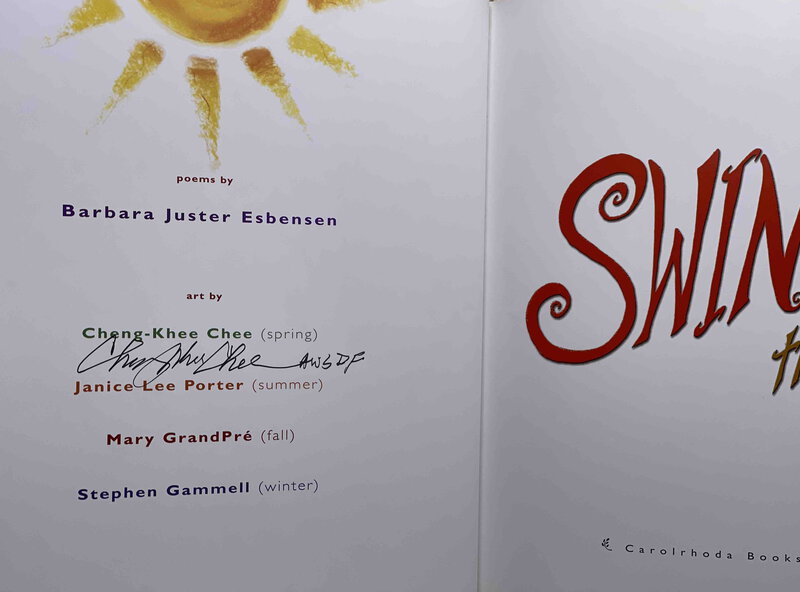 poems by
Barbara Juster Esbensen
art by
Cheng-Khee Chee (spring)
Cheng-Khee Chee AWS DF
Janice Lee Porter (summer)
Mary GrandPré (fall)
Stephen Gammell (winter)
SWIN
Carolrhoda Books